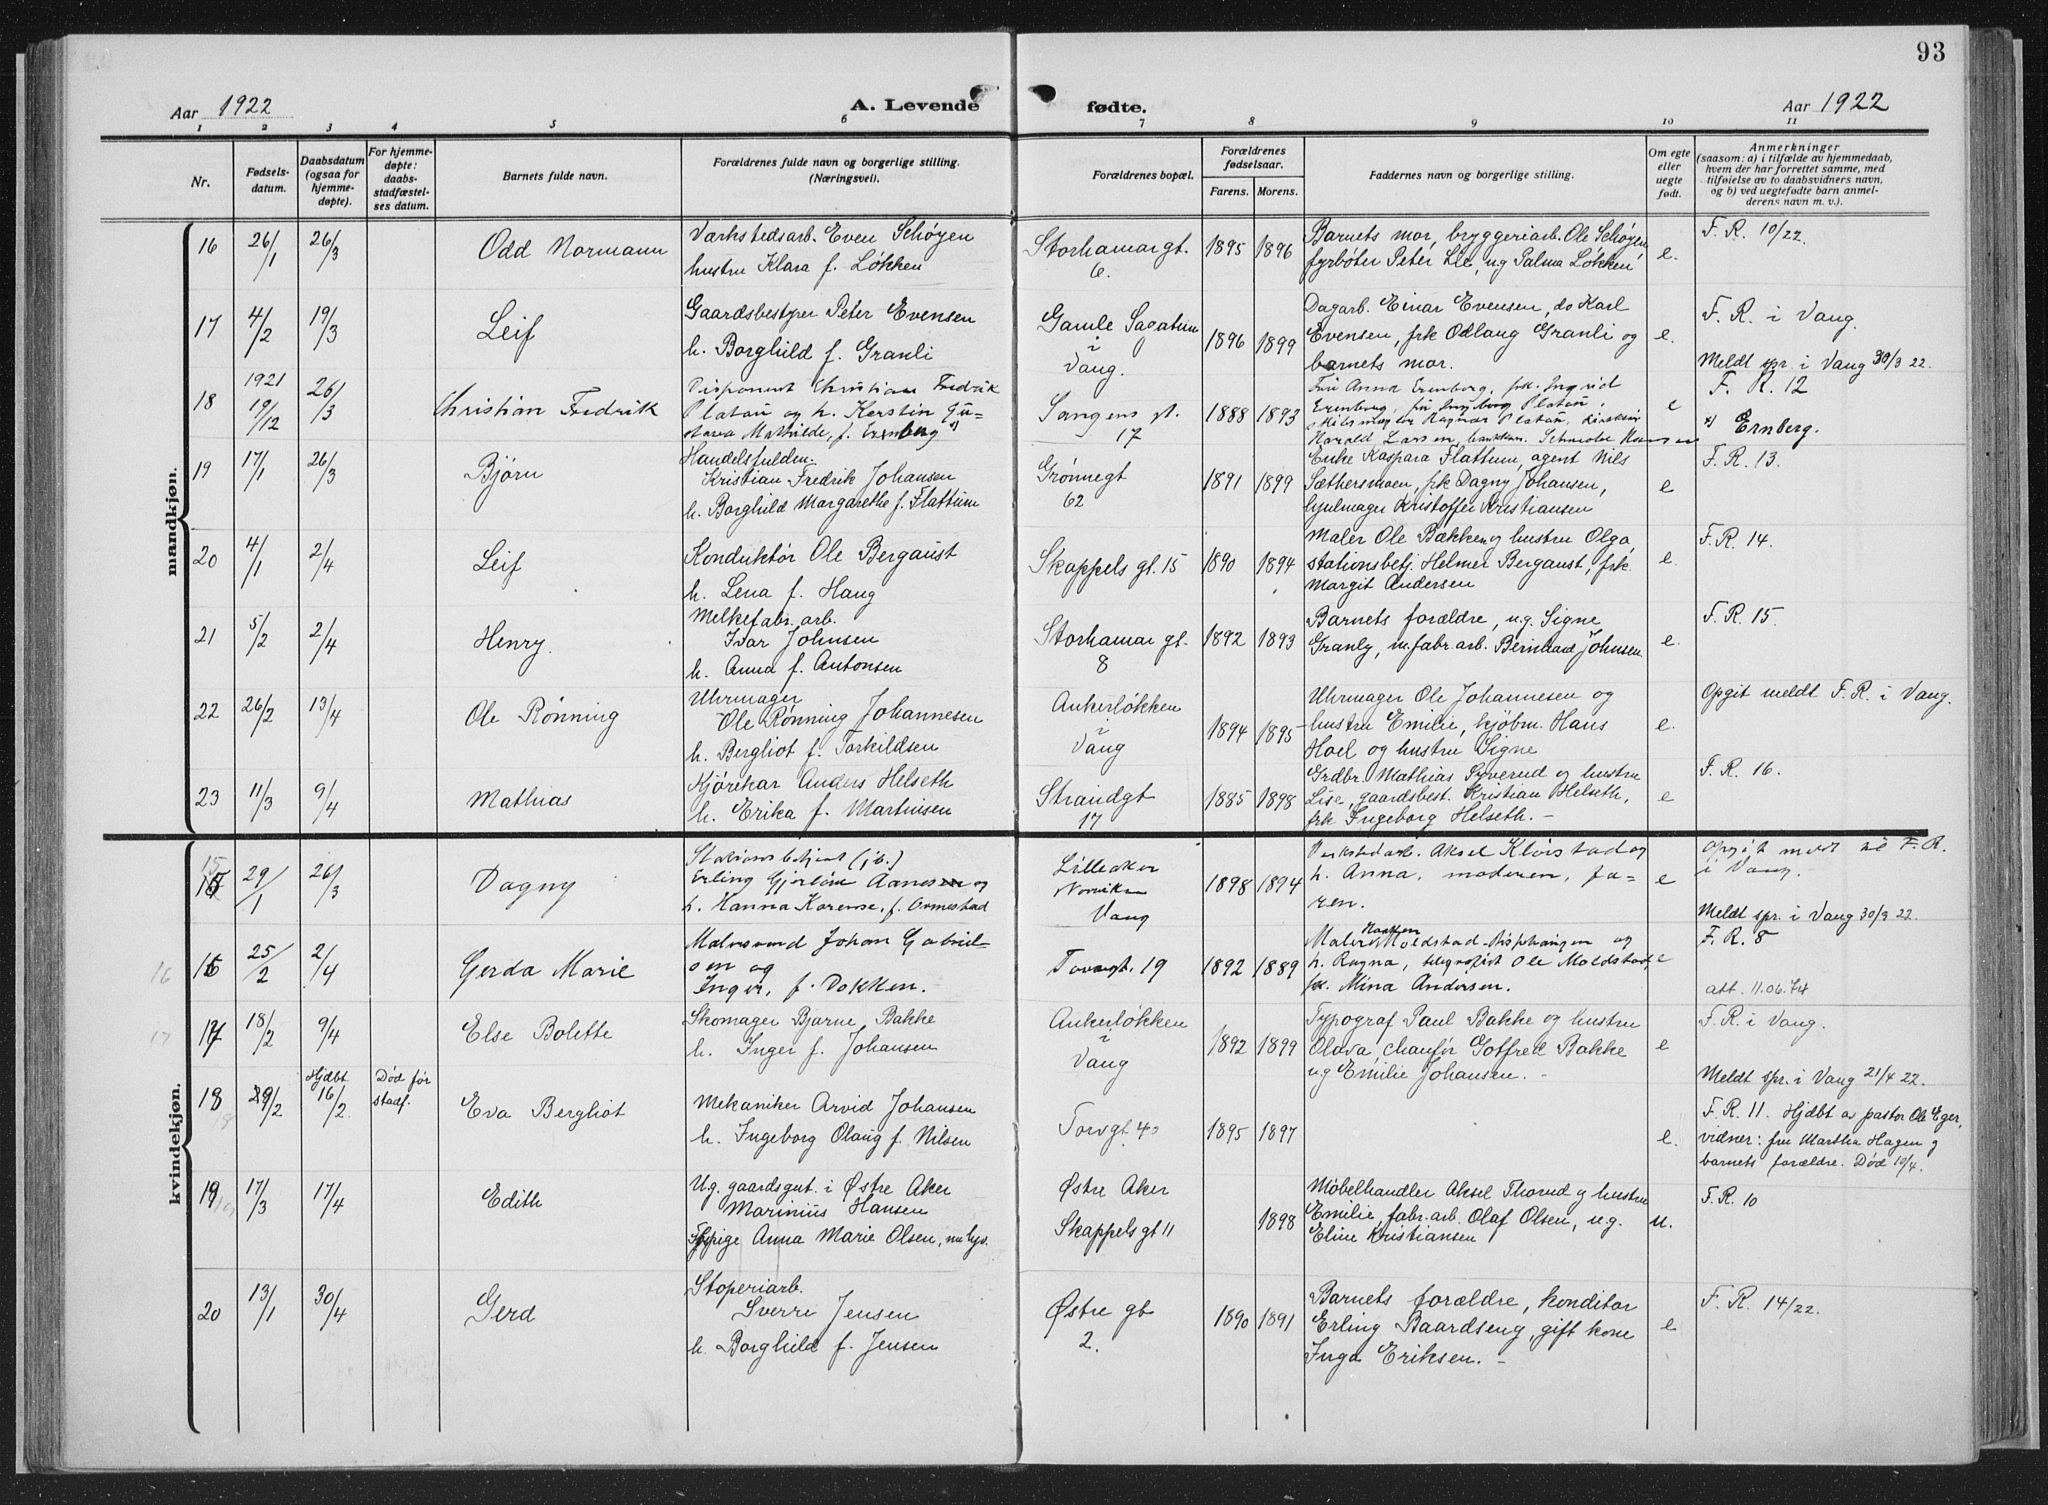 93
Aar 1922
A. Levende fødte.
Aar 1922
1 2 3 4 5 6 7 8 9 10 11
Nr.
Fødsels-
datum.
Daabsdatum
(ogsaa for
hjemme-
døpte).
For hjemme-
døpte:
daabs-
stadfæstel-
ses datum.
Barnets fulde navn.
Forældrenes fulde navn og borgerlige stilling.
(Næringsvei).
Forældrenes bopæl.
Forældrenes
fødselsaar.
Farens. Morens.
Faddernes navn og borgerlige stilling.
Om egte
eller
uegte
født.
Anmerkninger
(saasom: a) i tilfælde av hjemmedaab,
hvem der har forrettet samme, med
tilføielse av to daabsvidners navn,
og b) ved uegtefødte barn anmel-
derens navn m. v.).
mandkjøn.
16 26/1 26/3 Odd Normann
Værkstedsarb. Even Schøyen
hustru Klara f. Løkken
Storhamar gt.
6.
1895 1896
Barnets mor, bryggeriarb. Ole Schøyen
fyrbøter Peter Lie, ug Palma Løkken
e.
F. R. 10/22.
17 4/2 19/3 Leif
Gaardsbestyrer Peter Evensen
h. Borghild f. Granli
Gamle Sagatun
i
Vang.
1896 1899
Dagarb. Einar Evensen, do Karl
Evensen, frk Odlaug Granli og
barnets mor.
e.
F. R. i Vang.
Meldt spr. i Vang 30/3 22.
18 1921
19/12 26/3 Christian Fredrik
Disponent Christian Fredrik
Platou og h. Kerstin Gu-
stava Mathilde, f. Ernberg x)
Vangens gt.
17
1888 1893
Fru Anna Ernberg, frk. Ingrid
Ernberg, fru Ingeborg Platou,
Ragnar Platou,
Harald Larsen,
e
F. R. 12
x) Ernberg.
19 17/1 26/3 Bjørn
Handelsfuldm.
Kristian Fredrik Johansen
h. Borghild Margarethe f. Flattum
Grønnegt
62
1891 1899
Enke Kaspara Flattum, agent Nils
Sæthersmoen, frk Dagny Johansen,
hjulmager Kristoffer Kristiansen
e
F. R. 13.
20 4/1 2/4 Leif
Konduktør Ole Bergaust
h. Lena f. Haug
Skappels gt. 15
1890 1894
Maler Ole Bækken og hustru Olga,
stationsbetj. Helmer Bergaust, frk.
Margit Andersen
e.
F. R. 14.
21 5/2 2/4 Henry.
Melkefabr. arb.
Ivar Johnsen
h. Anna f. Antonsen
Storhamar gt.
8
1892 1893
Barnets forældre, ug. Signe
Granly, m.fabr.arb. Bernhard Johnsen.
e.
F. R. 15.
22 26/2 13/4 Ole Rønning
Uhrmager
Ole Rønning Johannesen
h. Bergliot f. Torkildsen
Ankerløkken
i
Vang
1894 1895
Uhrmager Ole Johannesen og
hustru Emilie, kjøbm. Hans
Hoel og hustru Signe
e.
Opgit meldt F. R. i Vang.
23 11/3 9/4 Mathias
Kjørekar Anders Helseth
h. Erika f. Martinsen
Strandgt
17
1885 1898
Grdbr. Mathias Syverud og hustru
Lise, gaardsbest. Kristian Helseth,
frk Ingeborg Helseth. -
e
F. R. 16.
kvindekjøn.
15
15 29/1 26/3 Dagny
Stationsbetjent (jb.)
Erling Gjerløw Aanesen og
h. Hanna Karense, f. Ormestad
Lilleaker
Vang
1898 1894
Verkstedarb. Aksel Kløvstad og
h. Anna, moderen, fa-
ren.
e
Opgit meldt til F. R.
i Vang.
Meldt spr. i Vang 30/3 22.
16 16 25/2 2/4 Gerda Marie
Malersvend Johan Gabriel-
sen og
Inger, f. Dokken.
Torvgt. 19
1892 1889
Maler Moldstad og
h. Ragna, telegrafist Ole Moldstad,
frk. Mina Andersen.
e
F. R. 8
att. 11.06.74
17 17 18/2 9/4 Else Bolette
Skomager Bjarne Bakke
h. Inger f. Johansen
Ankerløkken
i
Vang
1892 1899
Typograf Paul Bakke og hustru
Olava, chaufør Gotfred Bakke
ug Emilie Johansen. -
e
F. R. i Vang.
Meldt spr. i Vang 21/4 22.
18 29/2 Hjdbt.
16/2
Død før
stadf.
Eva Bergliot
Mekaniker Arvid Johansen
h. Ingeborg Olaug f. Nilsen
Torvgt
1895 1897
e.
F. R. 11. Hjdbt av pastor Ole Eger,
vidner: fru Martha Hagen og
barnets forældre. Død 10/4.
19 17/3 17/4 Edith
Ug. gaardsgut i Østre Aker
Marinius Hansen
Anna Marie Olsen,
Østre Aker
Skappels gt 11
1898
Møbelhandler Aksel Thorud og hustru
Emilie, fabr. arb. Olaf Olsen, ug.
Eline Kristiansen
u.
F. R. 10
20 13/1 30/4 Gerd
Støperiarb.
Sverre Jensen
h. Borghild f. Jensen
Østre gt
2.
1890 1891
Barnets forældre, konditor
Erling Baardseng, gift kone
Inga Eriksen. -
e
F. R. 14/22.